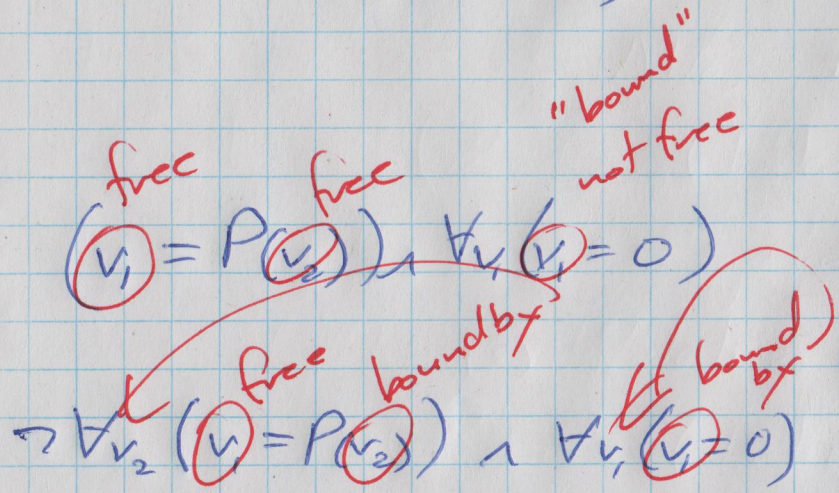 "bound"
free free not free
(v₁ = P(v₂)) ∧ ∀v₁(v₁ = 0)
free bound by bound by
¬∀v₂(v₁ = P(v₂)) ∧ ∀v₁(v₁ = 0)